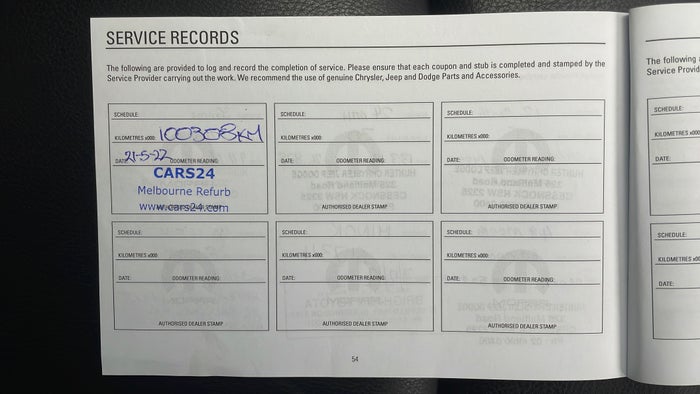 SERVICE RECORDS
The following are provided to log and record the completion of service. Please ensure that each coupon and stub is completed and stamped by the
Service Provider carrying out the work. We recommend the use of genuine Chrysler, Jeep and Dodge Parts and Accessories.
SCHEDULE:
KILOMETRES x000: 100308KM
DATE: 21-5-22 ODOMETER READING:
CARS24
Melbourne Refurb
www.cars24.com
SCHEDULE:
KILOMETRES x000:
DATE: ODOMETER READING:
AUTHORISED DEALER STAMP
SCHEDULE:
KILOMETRES x000:
DATE: ODOMETER READING:
AUTHORISED DEALER STAMP
SCHEDULE:
KILOMETRES x000:
DATE: ODOMETER READING:
AUTHORISED DEALER STAMP
SCHEDULE:
KILOMETRES x000:
DATE: ODOMETER READING:
AUTHORISED DEALER STAMP
SCHEDULE:
KILOMETRES x000:
DATE: ODOMETER READING:
AUTHORISED DEALER STAMP
54
The following
Service Provid
SCHEDULE:
KILOMETRES x000
DATE:
SCHEDULE:
KILOMETRES x00
DATE: